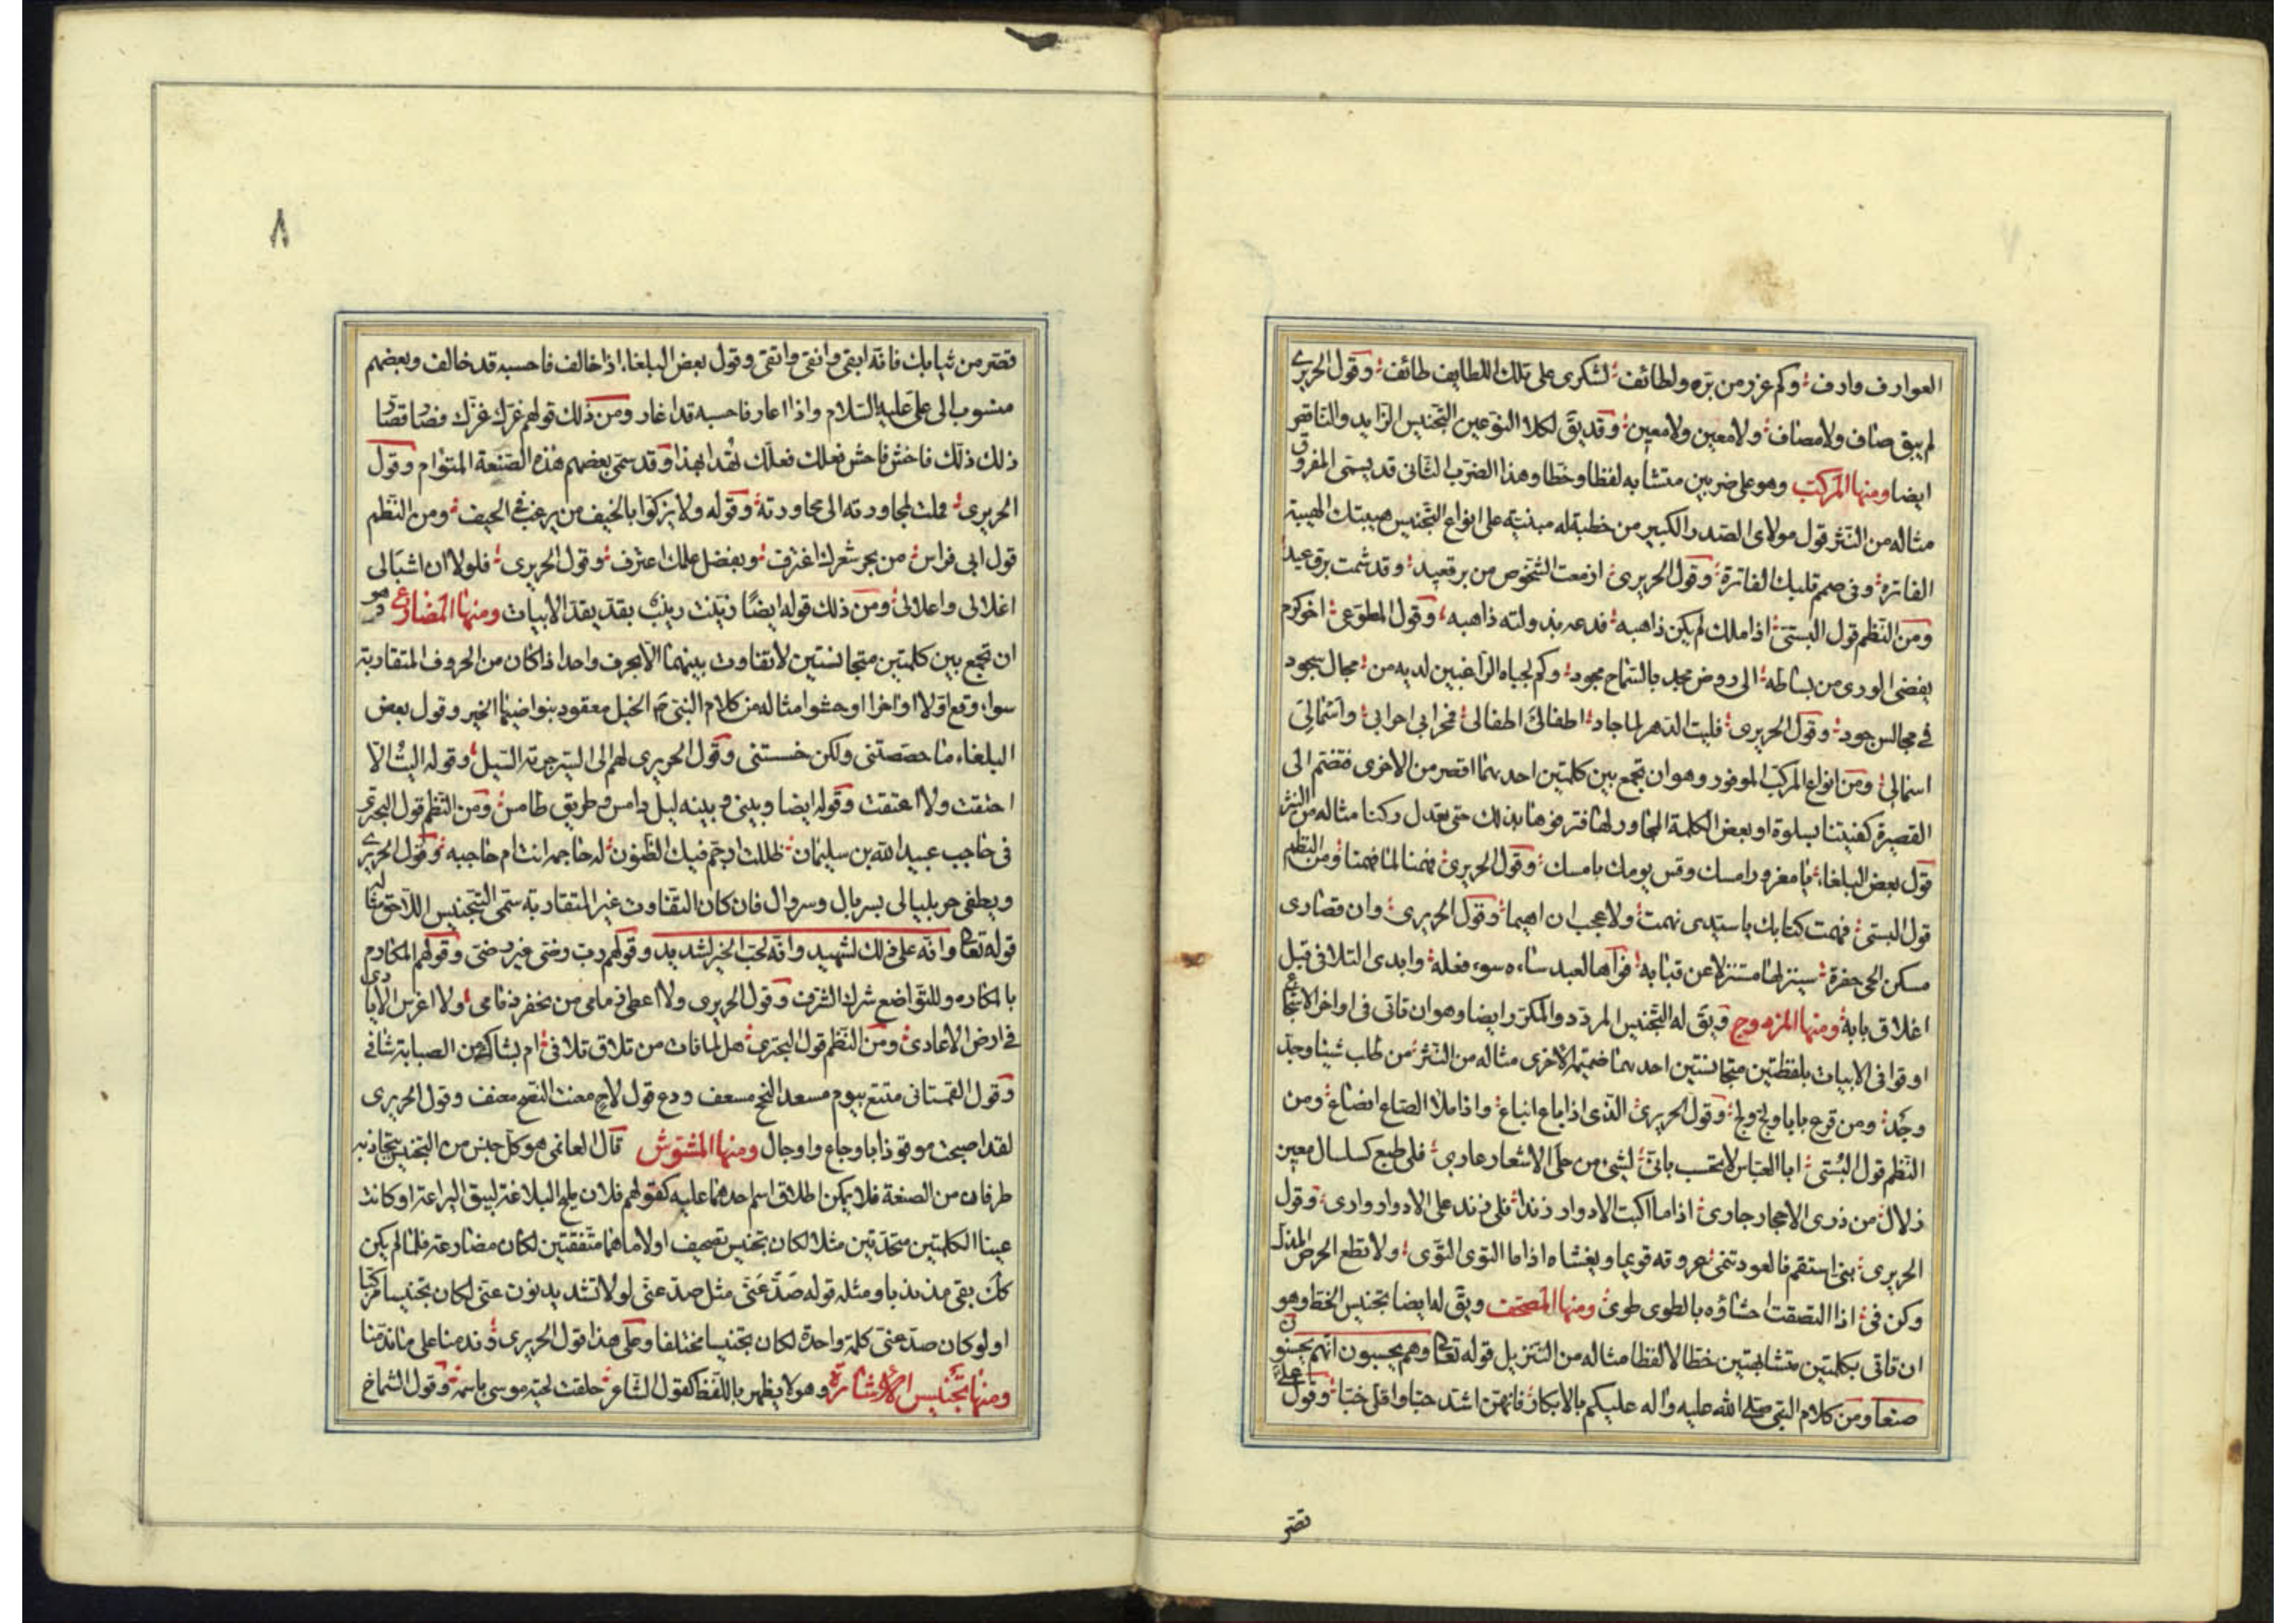 العوارف وارف وكم عزر من بره ولطائف لشكرى على تلك اللطايف طائف وقول الحريرى
لم يبق صاف ولا مصاف ولا معين ولا معين وقد يق لكلا النوعين التجنيس الزايد والناقص
ايضا ومنها المركب وهو على ضربين متشابه لفظا وخطا وهذا الضرب الثانى قد يسمى المفروق
مثاله من النثر قول مولاى الصدر الكبير من خطبة له مبنية على انواع التجنيس هيبتك الهيبة
الفاترة وفى صمم قلبك الفاترة وقول الحريرى ازمعت الشخوص من برقعيد وقد شمت برق عيد
ومن النظم قول البستى اذا ملك لم يكن ذا هبه فدعه فدولته ذاهبه وقول المطوعى اخو كرم
يفضى الورى من بساطه الى روض مجد بالسماح مجود وكم لجباه الراغبين لديه من مجال سجود
فى مجالس جود وقول الحريرى فليت الدهر لما جار اطفا لى اطفالى فخرابى احرابى واسمالى
اسمالى ومن انواع المركب الموفور وهو ان تجمع بين كلمتين احديهما اقصر من الاخرى فتضم الى
القصيرة كفنيتنا بسلوة او بعض الكلمة المجاور لها فترفوها بذلك حتى يعتدل ركنا مثاله من النثر
قول بعض البلغاء يا مغرور امسك وقس يومك بامسك وقول الحريرى فهمنا لما فهمنا ومن النظم
قول البستى فهمت كتابك يا سيدى فهمت ولا عجب ان اهيما وقول الحريرى وان قصارى
مسكن الحى حفرة سينزلها مستنزلا عن قبابه فواها لعبد ساءه سوء فعله وابدى التلافى قبل
اغلاق بابه ومنها المزدوج ويق له التجنيس المردد والمكرر ايضا وهو ان تاتى فى اواخر الاسجاع
او قوافى الابيات بلفظتين متجانستين احديهما ضميمة الاخرى مثاله من النثر من طلب شيئا وجد
وجد ومن قرع بابا ولج ولج وقول الحريرى الذى اذا باع انباع واذا ملا الصاع انصاع ومن
النظم قول البستى ابا العباس لا تحسب بانى لشيى من حلى الاشعار عارى فلى طبع كسلسال معين
زلال من ذرى الاحجار جارى اذا ما اكبت الادوار زندا فلى زند على الادوار وارى وقول
الحريرى بنى استقم فالعود تنمى عروقه قويما ويغشاه اذا ما التوى التوى ولا تطع الحرص المذل
وكن فتى اذا التصقت احشاؤه بالطوى طوى ومنها المصحف ويق له ايضا تجنيس الخط وهو
ان تاتى بكلمتين متشابهتين خطا لا لفظا مثاله من التنزيل قوله تعا وهم يحسبون انهم يحسنون
صنعا ومن كلام النبى صلى الله عليه واله عليكم بالابكار فانهن اشد حبا واقل خبا وقول على
قصر
٨
قصر من ثيابك فانه ابقى وانقى واتقى وقول بعض البلغاء اذا خالف فاحسبه قد خالف وبعضهم
منسوب الى على عليه السلام واذا اعار فاحسبه قد اغار ومن ذلك قولهم غرك عزك فصا قصار
ذلك ذلك فاخش فاحش فعلك فعلك تهدا بهذا وقد سمى بعضهم هذه الصنعة المتوام وقول
الحريرى فملت لمجاورته الى محاورته وقوله ولا يزكوا بالخيف من يرغب فى الحيف ومن النظم
قول ابى فراس من بحر شعرك اغترف وبفضل علمك اعترف وقول الحريرى فلولا ان اشبالى
اغلالى واعلالى ومن ذلك قوله ايضا زينت زينب بقد يقد الابيات ومنها المضارع وهو
ان تجمع بين كلمتين متجانستين لا تفاوت بينهما الا بحرف واحد اذا كان من الحروف المتقاربة
سواء وقع اولا او اخرا او حشوا مثاله من كلام النبى ص الخيل معقود بنواصيها الخير وقول بعض
البلغاء ما خصصتنى ولكن خسستنى وقول الحريرى لهم الى السير جرية السيل وقوله اليت الا
احتقت ولا اعتقت وقوله ايضا وبينى وبينه ليل دامس وطريق طامس ومن النظم قول البحترى
فى حاجب عبيد الله بن سليمان ظللت ارجم فيك الظنون احاجمه انت ام حاجبه وقول الحريرى
ويطفى حر بلبالى بسربال وسروال فان كان التفاوت بغير المتقاربة سمى التجنيس اللاحق مثاله
قوله تعا وانه على ذلك لشهيد وانه لحب الخير لشديد وقولهم رب رضى غير رضى وقولهم المكارم
بالمكاره وللتواضع شرك الشرف وقول الحريرى ولا اعطى زمامى من يخفر ذمامى ولا اغرس الايادى
فى ارض الاعادى ومن النظم قول البحترى هل لما فات من تلاق تلافى ام لشاك من الصبابة شافى
وقول القهستانى متتع بيوم مسعد النجح مسعف ودع قول لاح معنت النصح معنف وقول الحريرى
لقد اصبحت موقوذا باوجاع واوجال ومنها المشوش قال الغانمى هو كل جنس من التجنيس يتجاذبه
طرفان من الصنعة فلا يمكن اطلاق اسم احدهما عليه كقولهم فلان مليح البلاغة لبيق البراعة او كانت
عينا الكلمتين متحدتين مثلا لكان تجنيس تصحيف او لاماهما متفقتين لكان مضارعة فلما لم يكن
كك بقى مذبذبا ومثله قوله صد عنى مثل صد عنى لولا تشديد نون عنى لكان تجنيسا مركبا
او لو كان صد عنى كلمة واحدة لكان تجنيسا مختلفا وعلى هذا قول الحريرى وندمنا على ما ندمنا
ومنها تجنيس الاشارة وهو لا يظهر باللفظ كقول الشاعر حلقت لحية موسى باسمه وقول الشماخ